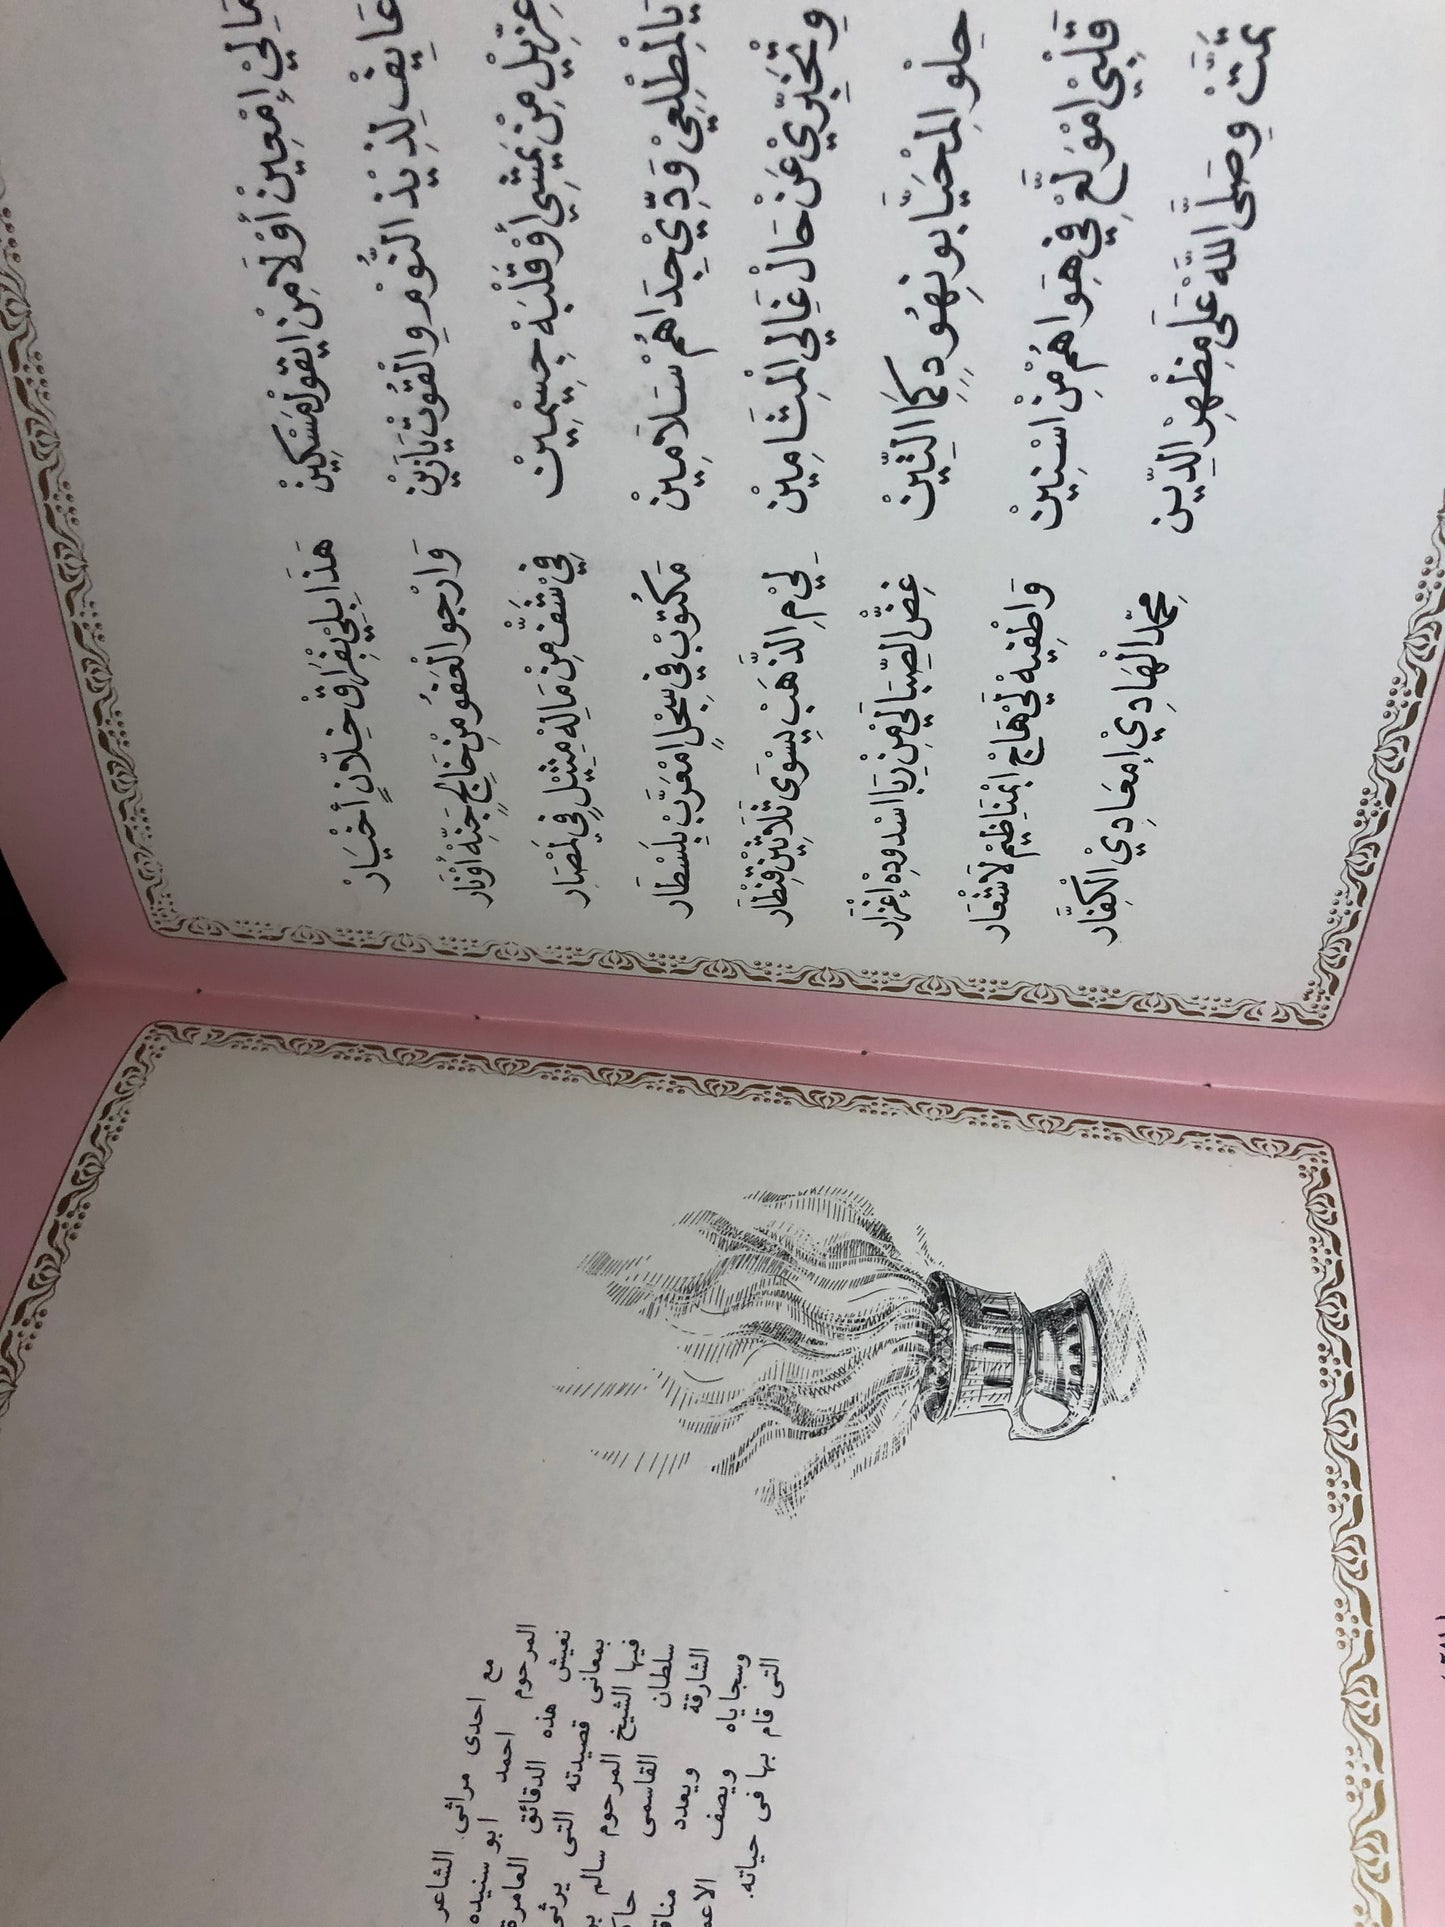 مَالِيْ إمْعِيْن أوْلَا مِنْ ايقول مَسْكِيْنْ هَذَا بِلِيْ بِفْرَاقْ خِلَّانٍ أخْيَارْ
عَايِفْ لِذيْذ النُّوْم وِالْقُوتْ يَازَيْن وَارْجوا الْعَفُو مِنْ خَالِجٍ جَنِّهْ اوْنَار
عِزِّيْل مِنْ يَمْشِي أوْ قَلْبَهْ جِسِمِيْن فِي شَفّْ مِنْ مَالِهْ مِثِيْلٍ فِي لَمْصَار
يَالمِطْلِعِيْ وَدِّيْ جِدَاهُمْ سَلَامِيْن مَكْتُوبْ فِي سِجْلٍ امْعَرَّبْ بِلَسْطَار
وِتْخَبِّرِيْ عَنْ حَالْ غَالِي الْمِثَامِيْن لِيْ مِ الذَّهَبْ يِسْوَى ثَلَاثِيْن قِنْطَار
حِلْو الْمِحَيَّا بو نِهُودٍ كَمَا التِّيْنْ غِضّ الصِّبَا لَيْ مِنْ رِبَا اسْدُودِهْ إغْزَار
قَلْبِيْ امْوَلَّعْ فِي هَوَاهُمْ مِنْ اسْنِيْن وَاطْفِيْهْ لَيْ هَاجْ ابْمَنَاظِيْمْ لَاشْعَار
تَمَّتْ وِصَلَّى اللّه عَلَى مِظْهِرِ الدِّيْن مْحِمّد الْهَادِيْ إمْعَادِيْ الْكِفَّار
مع احدى مراثى الشاعر
المرحوم احمد ابو سنيده
نعيش هذه الدقائق العامرة
بمعانى قصيدته التى يرثى
فيها الشيخ المرحوم سالم
سلطان القاسمى
الشارقة ويعدد
وسجاياه ويصف
التى قام بها فى حياته.